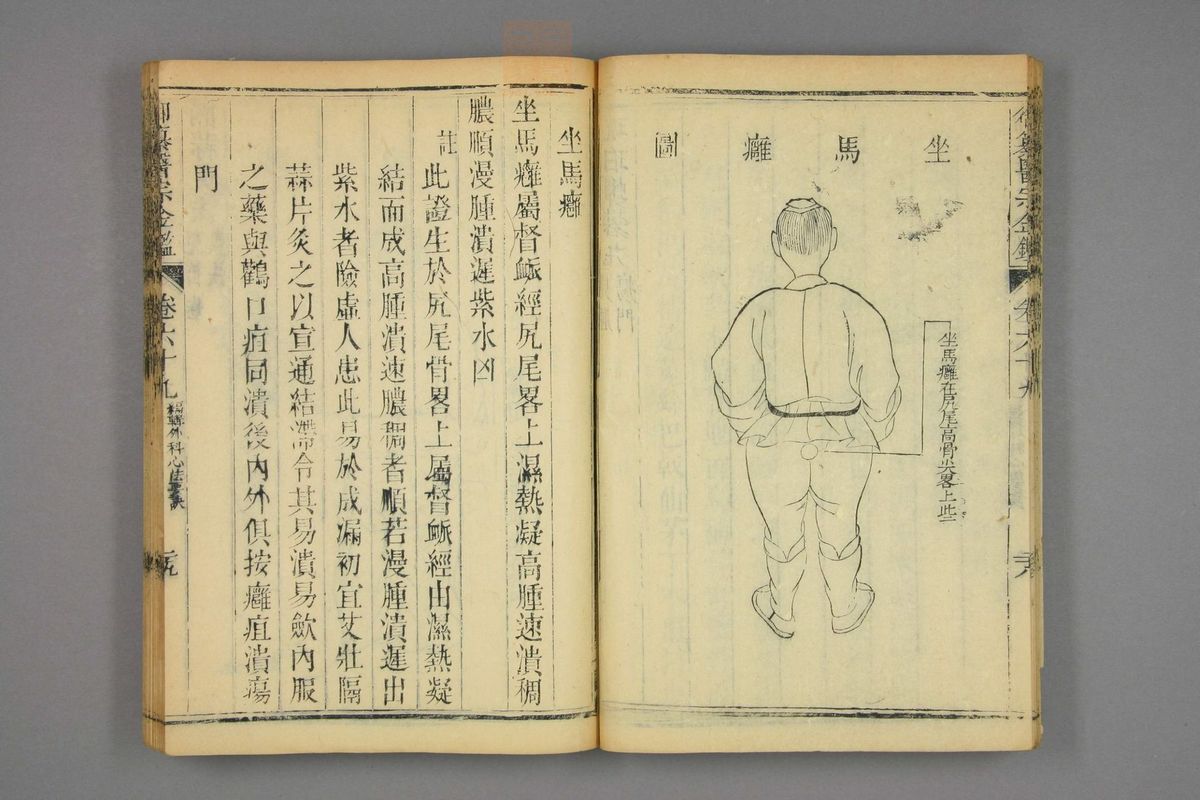 坐馬癰圖
坐馬癰在尻尾高骨尖畧上些
御纂醫宗金鑑
卷六十九
二十八
坐馬癰
坐馬癰屬督脈經尻尾畧上濕熱凝高腫速潰稠
膿順漫腫潰遲紫水凶
註
此證生於尻尾骨畧上屬督脈經由濕熱凝
結而成高腫潰速膿稠者順若漫腫潰遲出
紫水者險虛人患此易於成漏初宜艾壯隔
蒜片灸之以宣通結滯令其易潰易斂內服
之藥與鸛口疽同潰後內外俱按癰疽潰瘍
門
御纂醫宗金鑑
卷六十九
編輯外科心法要訣
二十九